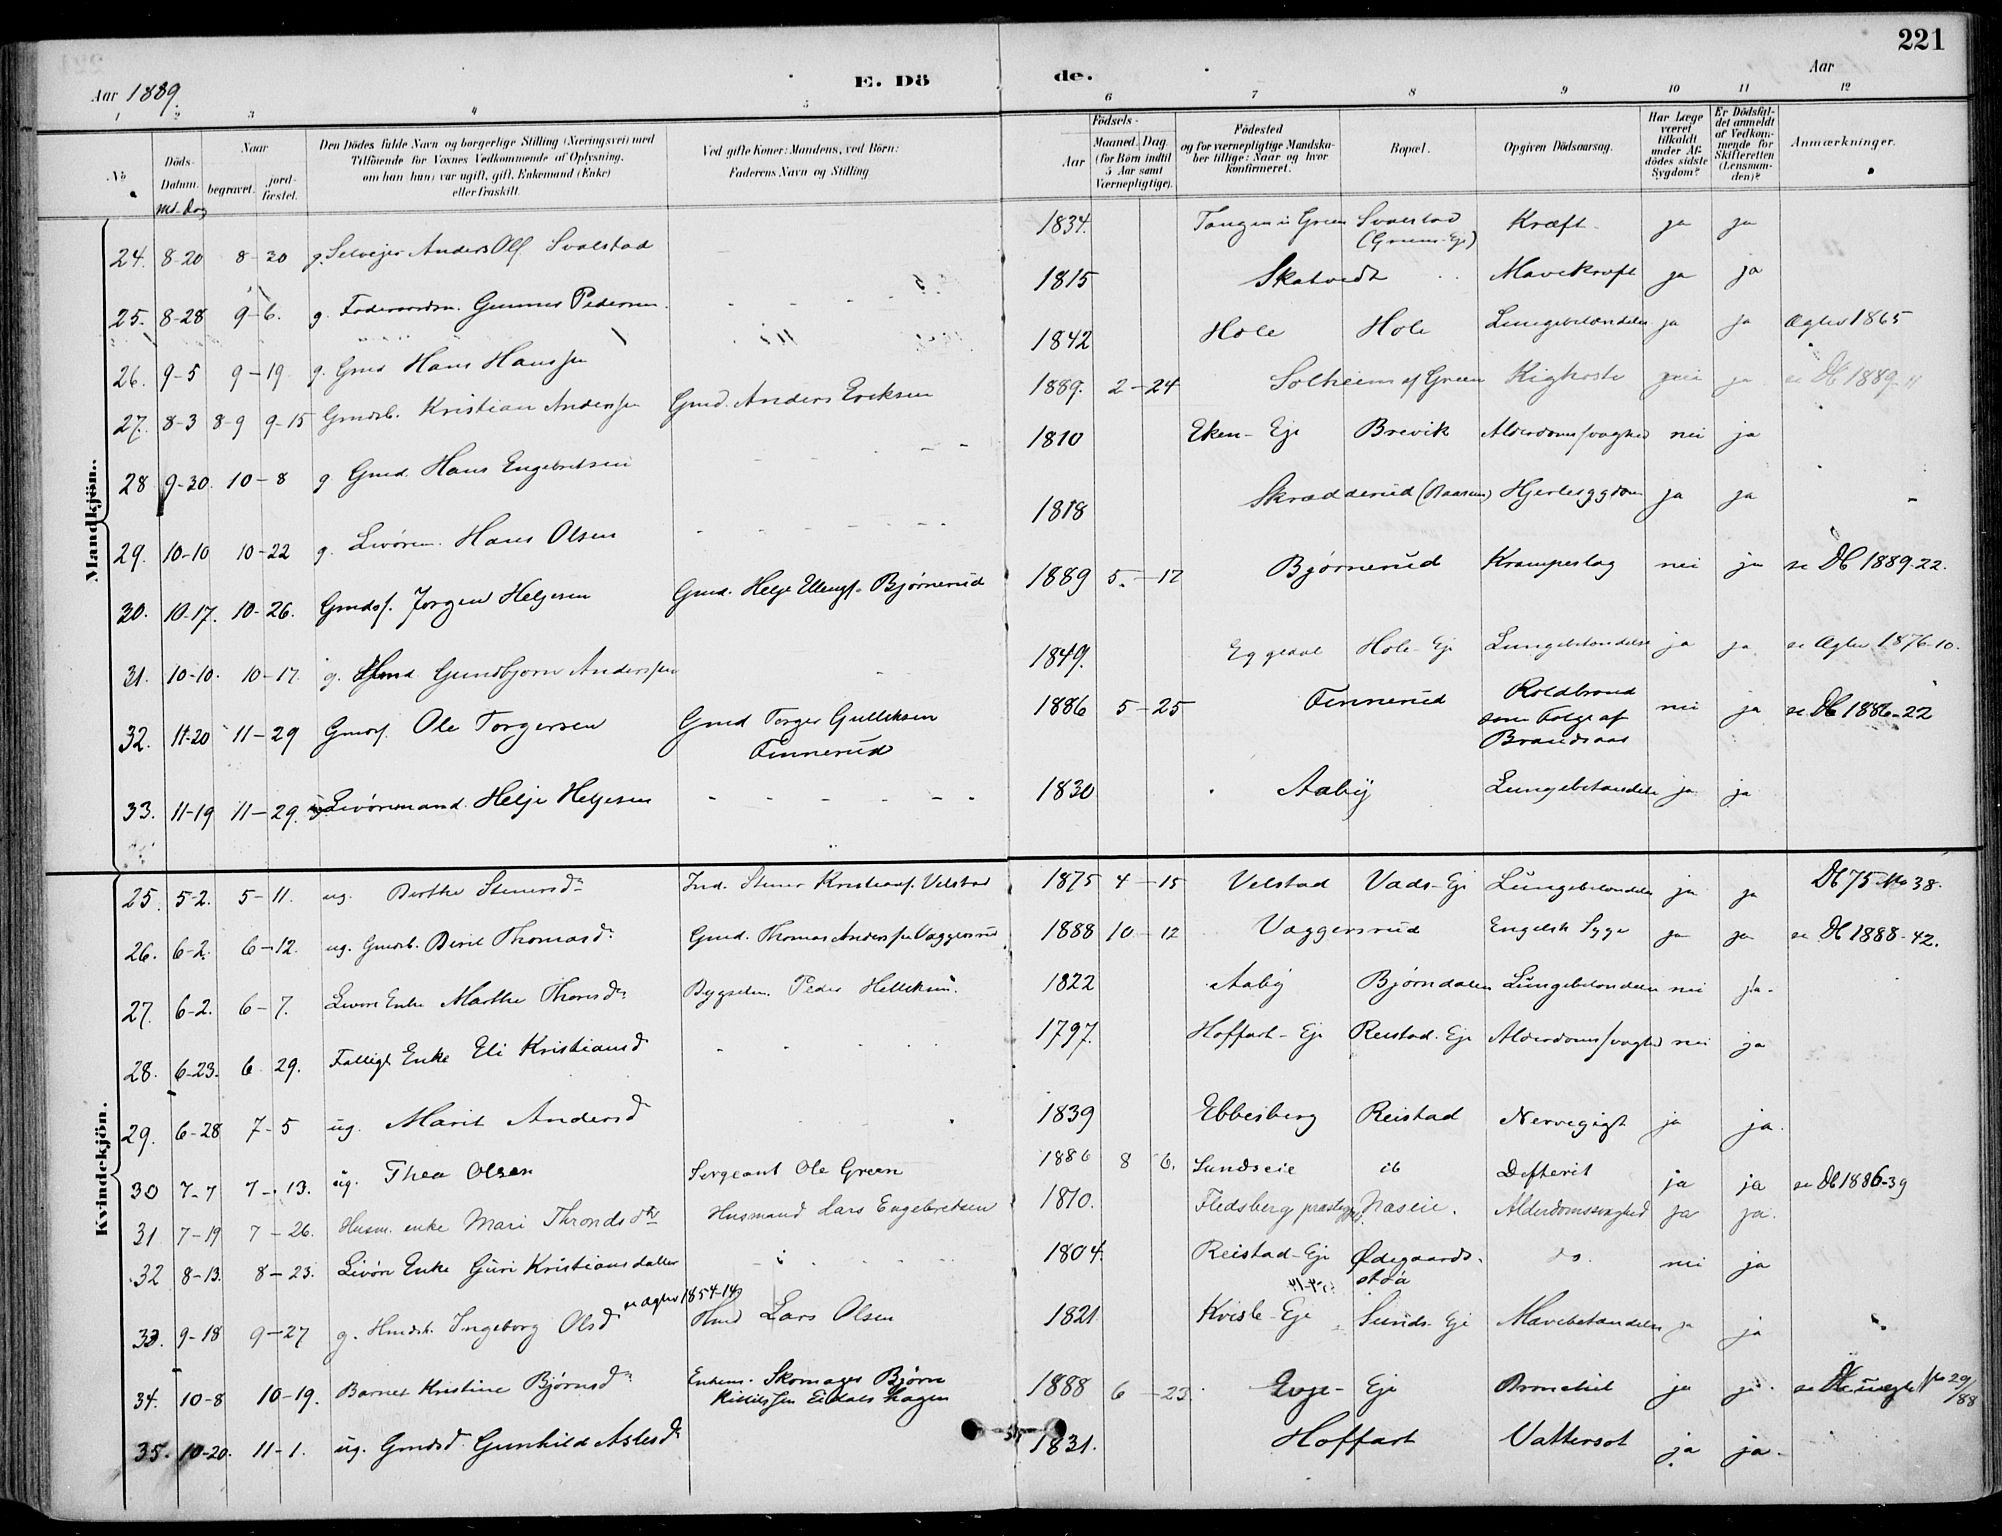 221
Aar 1889.
E. Döde.
Aar
1 2 3 4 5 6 7 8 9 10 11 12
No
Döds-Datum.
Naar
begravet.
jordfæstet.
Den Dödes fulde Navn og borgerlige Stilling (Næringsvei) med
Tilföiende for Voxnes Vedkommende af Oplysning,
om han (hun) var ugift, gift, Enkemand (Enke)
eller fraskilt.
Ved gifte Koner: Mandens, ved Börn:
Faderens Navn og Stilling
Födsels-
Aar
Maaned. Dag
(for Börn indtil
5 Aar samt
Værnepligtige).
Födested
og for værnepligtige Mandskaber tillige: Naar og hvor
konfirmeret.
Bopæl.
Opgiven Dödsaarsag.
Har Læge været tilkaldt under Afdödes sidste Sygdom?
Er Dödsfaldet anmeldt af Vedkommende for Skifteretten (Lensmanden)?
Anmærkninger.
Md. Dag
Mandkjön.
24. 8-20 8-30 g. Selveier Anders Ols. Svalstad 1834. Tangen i Green Svalstad (Greens-Eje) Kræft ja ja
25. 8-28 9-6. g. Foderaadsm. Gunnar Pedersen 1815 Skatvedt Mavekræft ja ja
26. 9-5 9-19 g. Gmd Hans Hanssen 1842 Hole Hole Lungebetændelse ja ja Ægtev 1865
27. 8-3 8-9 9-15 Gmdsb. Kristian Anderssen Gmd. Anders Eriksen 1889. 2-24 Solheim af Green Kighoste nei ja se Db 1889-11
28 9-30. 10-8 g Gmd. Hans Engebretsen 1810 Eken-Eje Brevik Alderdomssvaghed nei ja
29. 10-10 10-22 g. Livörem. Hans Olsen 1818 Skrædderud (Raaen) Hjertesygdom ja ja
30. 10-17. 10-26. Gmdss. Jørgen Helgesen Gmd. Helje Ellingss. Bjørnerud 1889 5-17 Bjørnerud Krampeslag nei ja se Db 1889-22.
31. 10-10. 10-17. g. Hmd Gundbjørn Anderssen 1849. Eggedal Hole-Eje Lungebetændelse ja ja se Ægtev 1876-10.
32. 11-20 11-29 Gmds. Ole Torgersen Gmd Torger Gulliksen Finnerud 1886 5-25 Finnerud Koldbrand som Følge af Brandsaar nei ja se Db 1886-22
33. 11-19 11-29. Livöremand. Helje Helgesen 1830 Aaby Lungebetændelse ja ja
Kvindekjön.
25. 5-2. 5-11. ug. Berthe Steinersdr Ind. Steiner Kristians. Velstad 1875 4-15 Velstad Vads-Eje Lungebetændelse ja ja Db 75 No 38.
26. 6-2. 6-12. ug. Gmdsb. Berit Thomasdr Gmd. Thomas Anderssen Vaggersrud 1888 10-12 Vaggersrud Engelsk Syge ja ja se Db 1888-42.
27. 6-2. 6-7. Livöre Enke Marthe Thorsdr Bygselm. Peder Helliksen. 1822 Aaby Bjørndalen Lungebetændelse nei ja.
28. 6-23. 6 29. Fattigl. Enke Eli Kristiansd 1797. Hoffart-Eje Reistad-Eje Alderdomssvaghed nei ja
29. 6-28 7-5 ug. Marit Andersd 1839 Ebbesberg Reistad Nervegigt ja ja.
30 7-7 7-13. ug. Thea Olsen Sergeant Ole Green 1886 8 6. Sundseie ib Difterit ja ja se Db 1886-39
31 7-19 7-26. Husm. enke Mari Throndsdtr Husmand Lars Engebretsen 1810. Flesberg præstegj. Næseie. Alderdomssvaghed ja ja.
32 8-13. 8-23. Livöre Enke Guri Kristiansdatter 1804. Reistad-Eje Ødegaardsstøa do. nei ja
33. 9-18 9-27 g. Hmdsk. Ingeborg Olsd se Ægtev 1854-14 Hmd Lars Olsen 1821. Kvisle-Eje Sunds-Eje Mavebetændelse ja ja
34. 10-8 10-19. Barnet Kristine Bjørnsdr Enkem. Skomager Bjørn Kittilssen Eidalshagen 1888 6-23. Evje-Eje Bronchit ja ja. No 29/88
35. 10-20. 11-1. ug. Gmdsd. Gunhild Aslesdr 1831. Hoffart Vattersot ja ja.